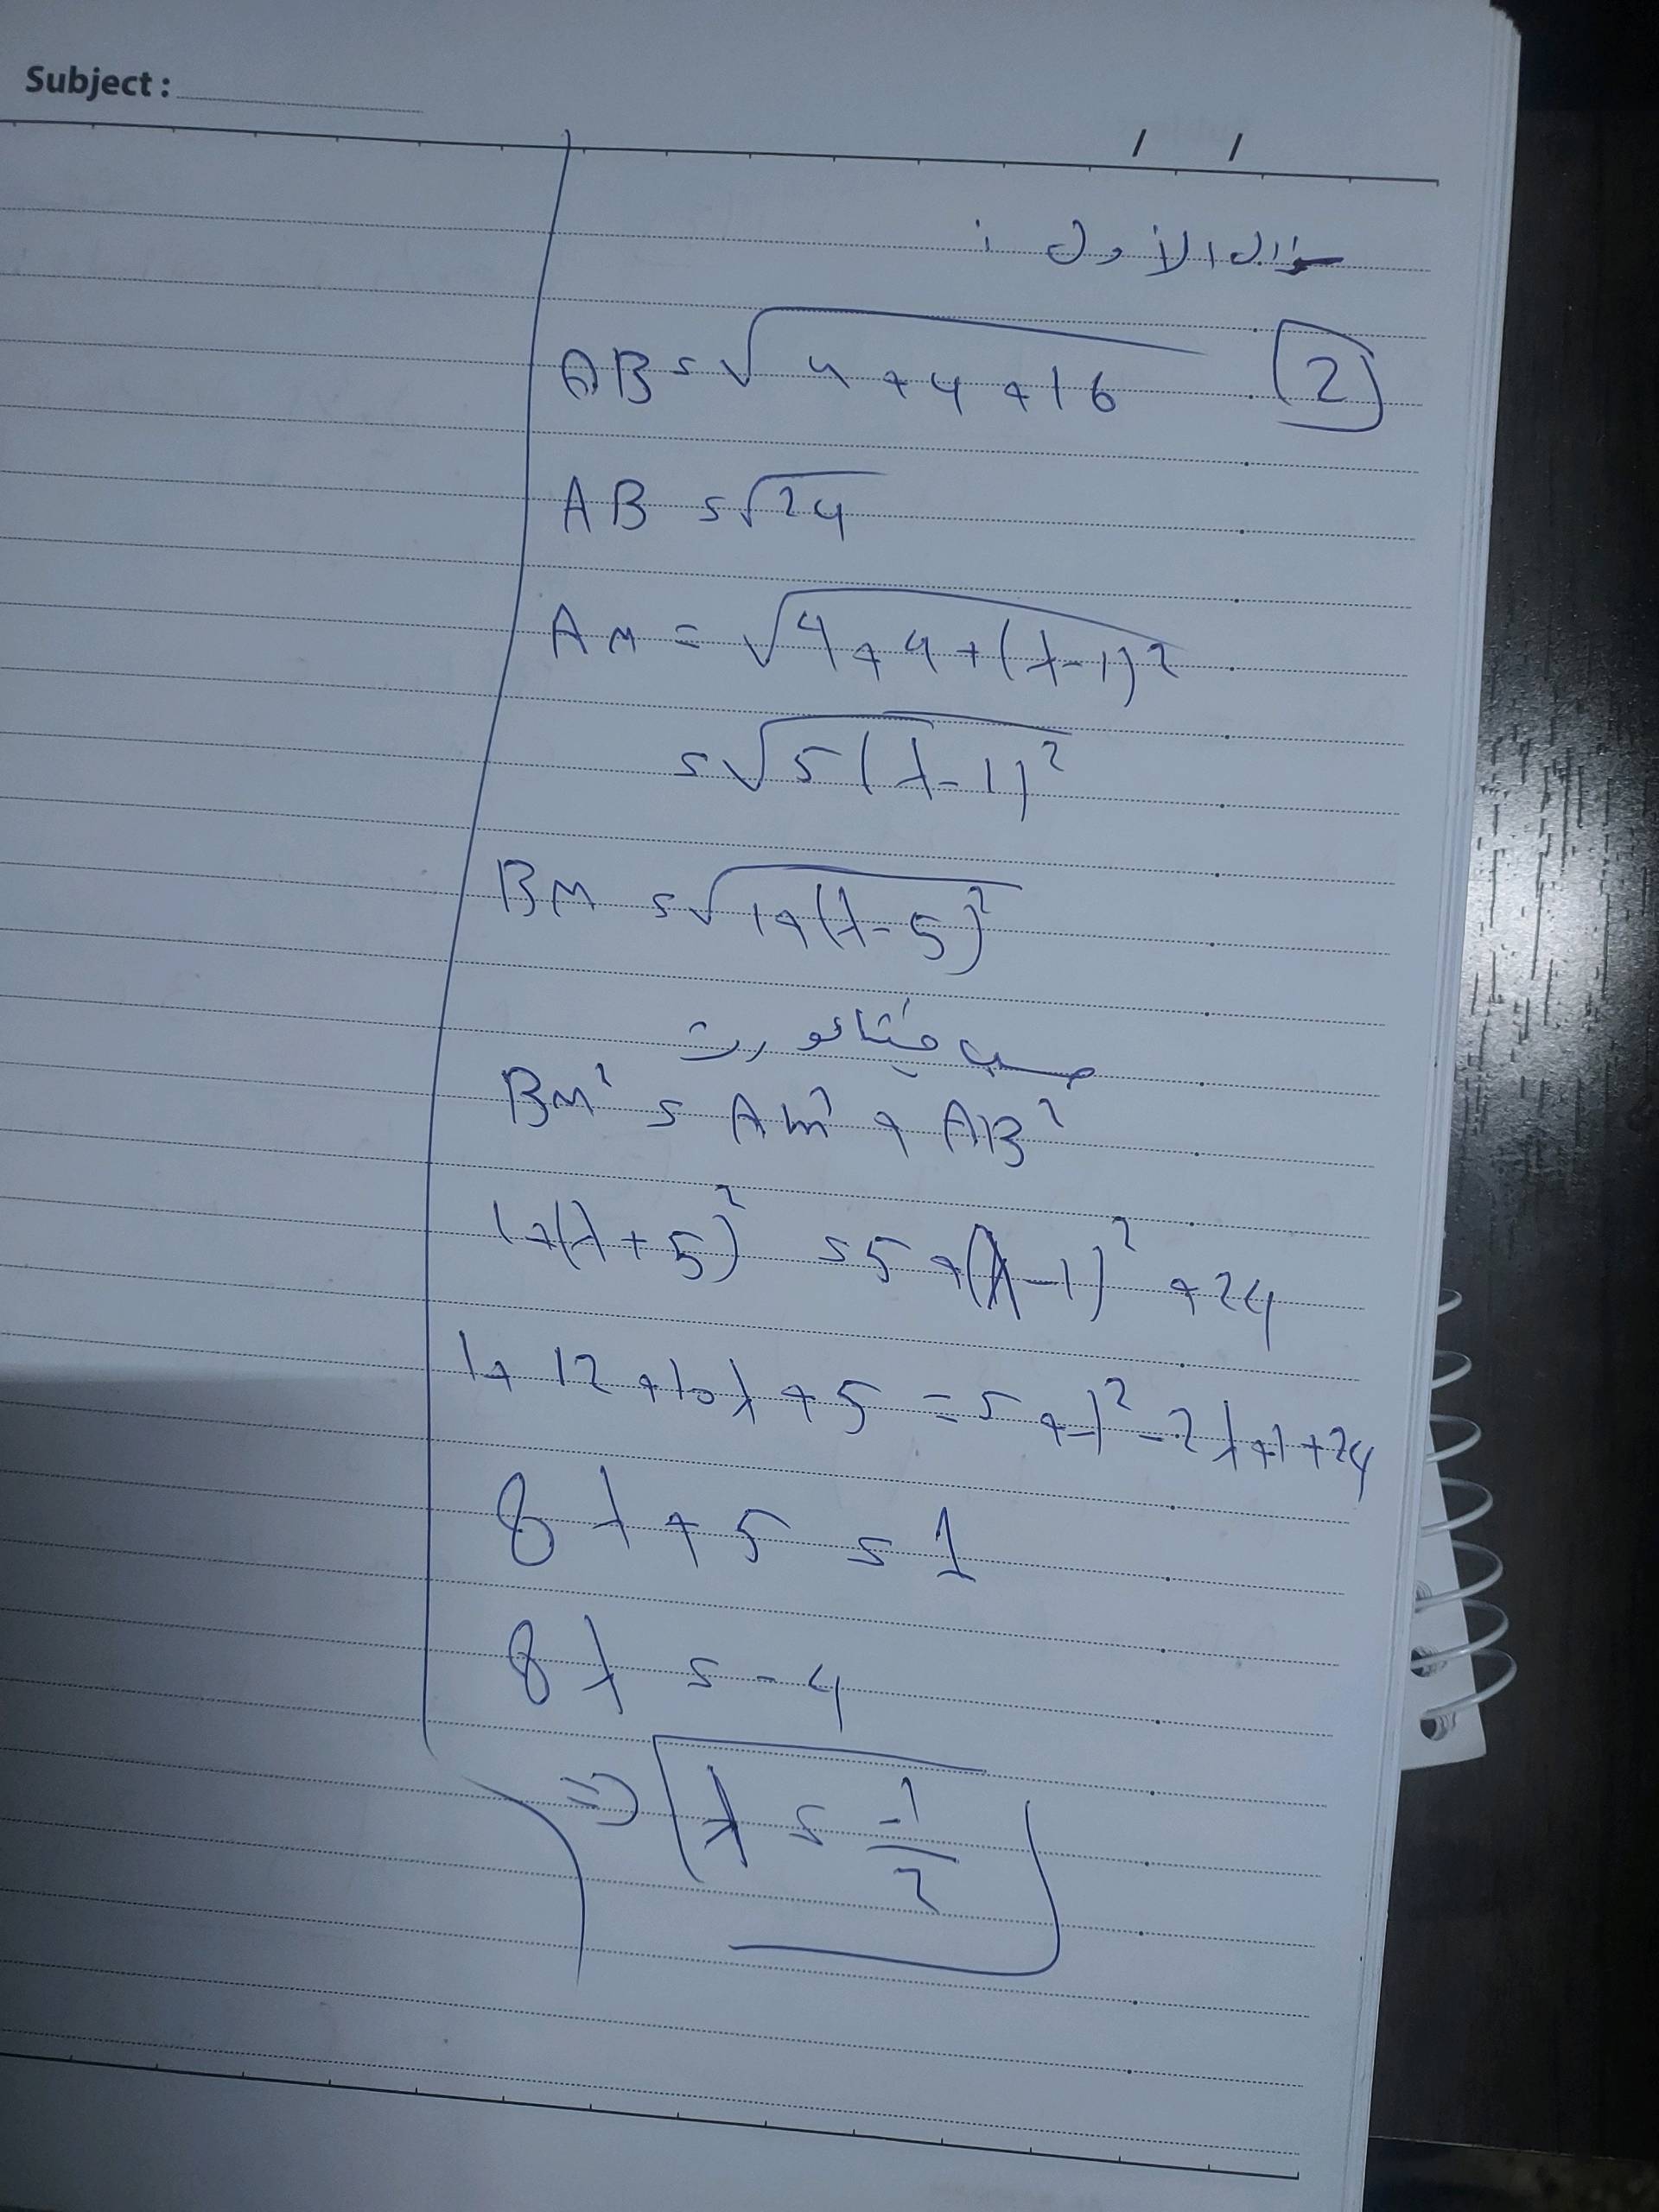 Subject :
/ /
سؤال الأول :
2
AB = √4 + 4 + 16
AB = √24
AM = √4 + 4 + (λ-1)²
= √5 (λ-1)²
BM = √1+(λ-5)²
حسب فيثاغورث
BM² = AM² + AB²
1+(λ+5)² = 5 +(λ-1)² + 24
1+ 12 +10λ + 5 = 5 +λ² - 2λ+1+24
8λ + 5 = 1
8λ = -4
⇒ λ = -1/2